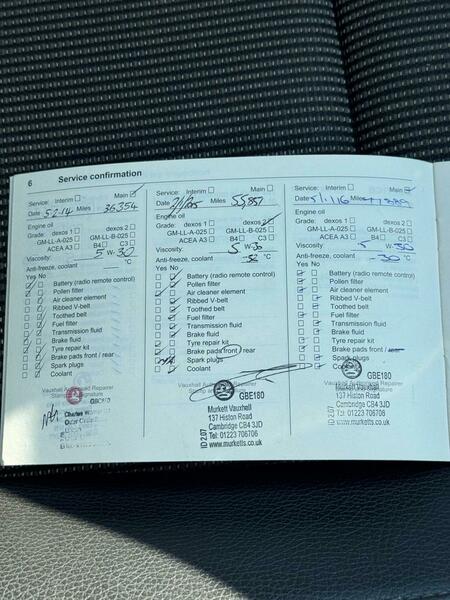 6 Service confirmation
Service: Interim Main
Date 5.2.14 Miles 36,354
Engine oil
Grade: dexos 1 dexos 2
GM-LL-A-025 GM-LL-B-025
ACEA A3 B4 C3
Viscosity: 5 W-30
Anti-freeze, coolant °C
Yes No
Battery (radio remote control)
Pollen filter
Air cleaner element
Ribbed V-belt
Toothed belt
Fuel filter
Transmission fluid
Brake fluid
Tyre repair kit
Brake pads front / rear
Spark plugs
Coolant
Vauxhall Authorised Repairer
Service: Interim Main
Date Miles 55,857
Engine oil
Grade: dexos 1 dexos 2
GM-LL-A-025 GM-LL-B-025
ACEA A3 B4 C3
Viscosity: 5 W-30
Anti-freeze, coolant °C
Yes No
Battery (radio remote control)
Pollen filter
Air cleaner element
Ribbed V-belt
Toothed belt
Fuel filter
Transmission fluid
Brake fluid
Tyre repair kit
Brake pads front / rear
Spark plugs
Coolant
Vauxhall Authorised Repairer
GBE180
Murkett Vauxhall
137 Histon Road
Cambridge CB4 3JD
Tel: 01223 706706
www.murketts.co.uk
ID 2.07
Service: Interim Main
Date Miles
Engine oil
Grade: dexos 1 dexos 2
GM-LL-A-025 GM-LL-B-025
ACEA A3 B4 C3
Viscosity: 5 W-30
Anti-freeze, coolant -30 °C
Yes No
Battery (radio remote control)
Pollen filter
Air cleaner element
Ribbed V-belt
Toothed belt
Fuel filter
Transmission fluid
Brake fluid
Tyre repair kit
Brake pads front /
Spark plugs
GBE180
Murkett Vauxhall
137 Histon Road
Cambridge CB4 3JD
Tel: 01223 706706
www.murketts.co.uk
ID 2.07